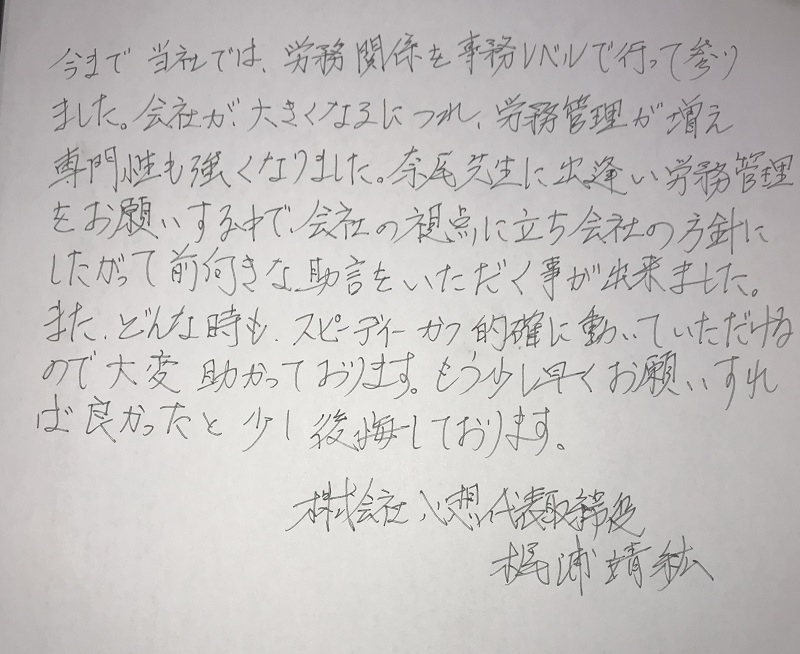 今まで当社では、労務関係を事務レベルで行って参り
ました。会社が大きくなるにつれ、労務管理が増え
専門性も強くなりました。奈尾先生に出逢い労務管理
をお願いする中で、会社の視点に立ち会社の方針に
したがって前向きな助言をいただく事が出来ました。
また、どんな時も、スピーディーかつ的確に動いていただける
ので大変助かっております。もう少し早くお願いすれ
ば良かったと少し後悔しております。
株式会社心想代表取締役
梶浦靖紘